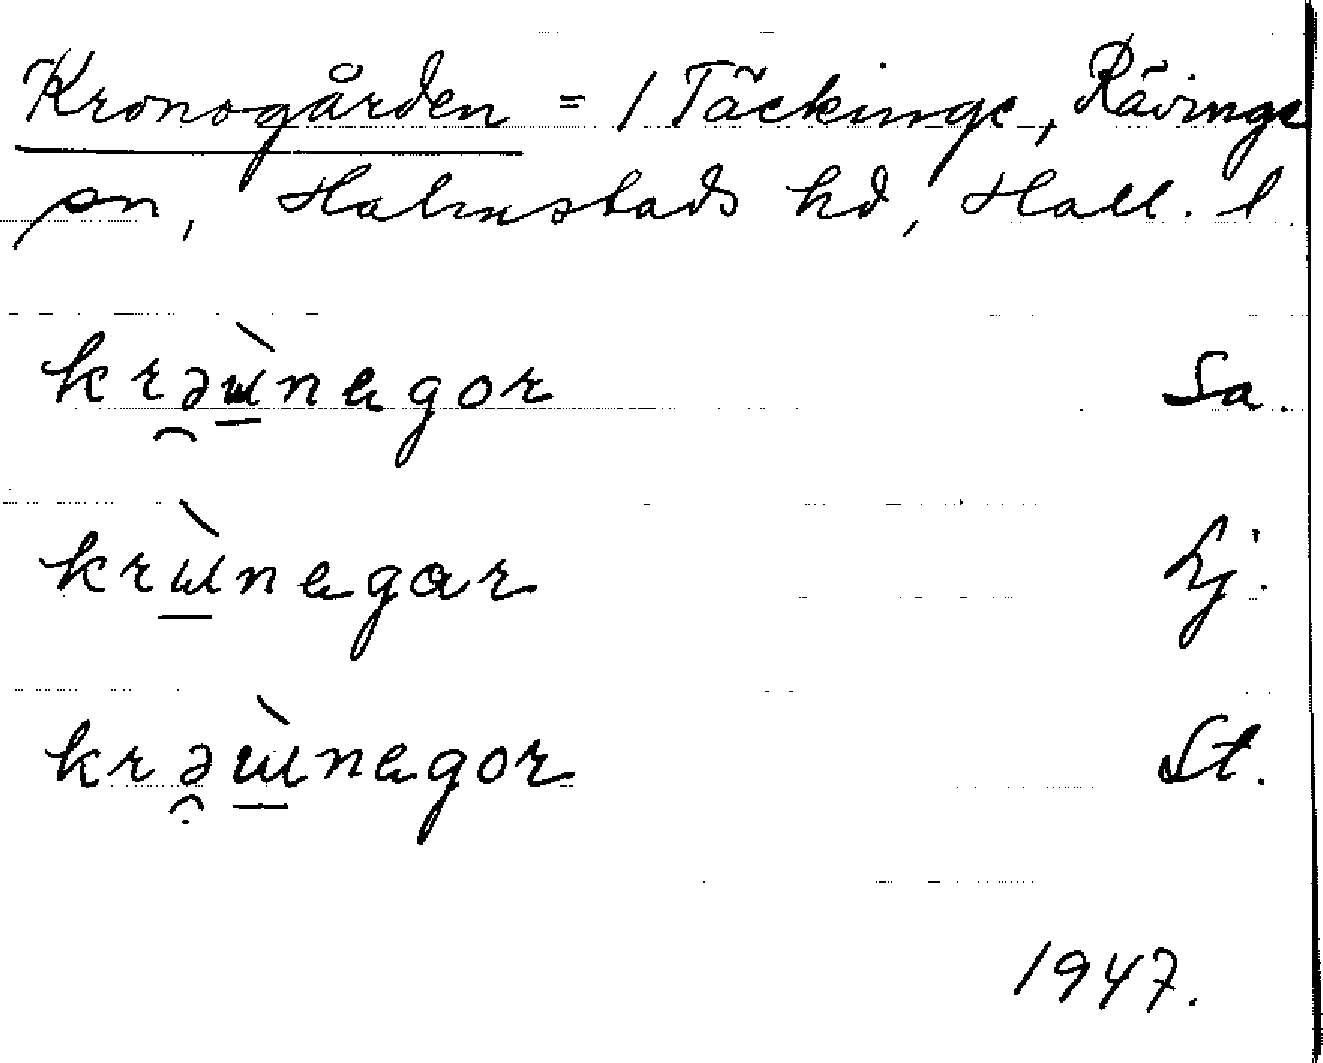 Kronogården = 1 Täckinge, Rävinge
sn, Halmstads hd, Hall. l
krəɯ̀negor Sa.
krɯ̀negar Lj.
krəɯ̀negor St.
1947.